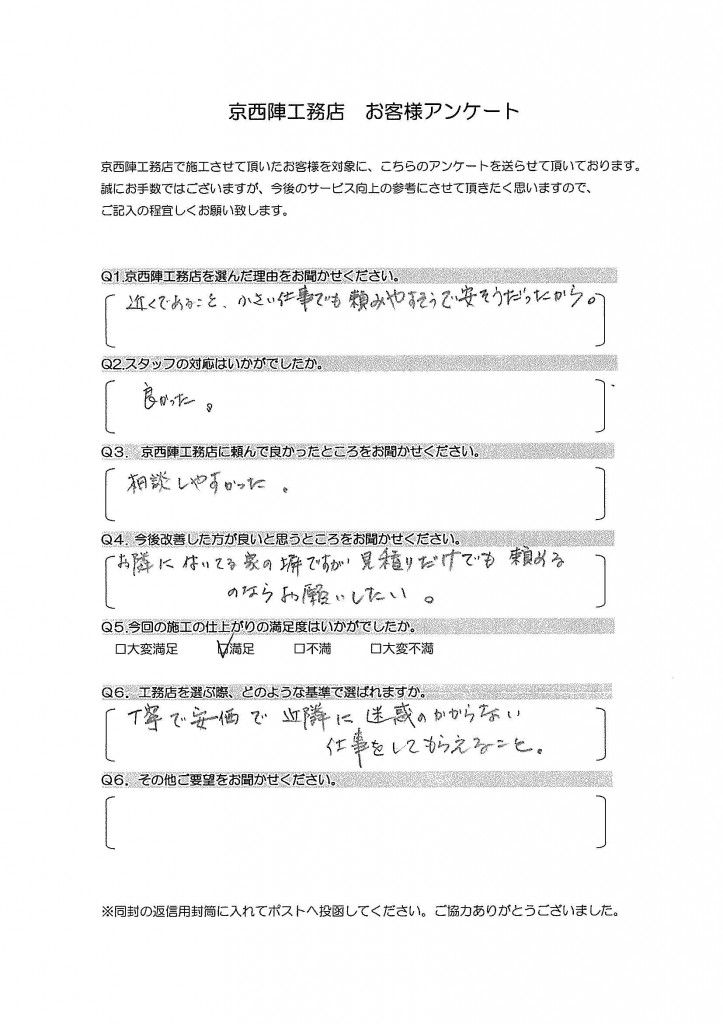 京西陣工務店　お客様アンケート
京西陣工務店で施工させて頂いたお客様を対象に、こちらのアンケートを送らせて頂いております。
誠にお手数ではございますが、今後のサービス向上の参考にさせて頂きたく思いますので、
ご記入の程宜しくお願い致します。
Q1.京西陣工務店を選んだ理由をお聞かせください。
近くであること、小さい仕事でも頼みやすそうで安そうだったから。
Q2.スタッフの対応はいかがでしたか。
良かった。
Q3．京西陣工務店に頼んで良かったところをお聞かせください。
相談しやすかった。
Q4．今後改善した方が良いと思うところをお聞かせください。
お隣に付いてる家の塀ですが見積りだけでも頼める
のならお願いしたい。
Q5.今回の施工の仕上がりの満足度はいかがでしたか。
□大変満足　☑満足　□不満　□大変不満
Q6．工務店を選ぶ際、どのような基準で選ばれますか。
丁寧で安価で近隣に迷惑のかからない
仕事をしてもらえること。
Q6．その他ご要望をお聞かせください。
※同封の返信用封筒に入れてポストへ投函してください。ご協力ありがとうございました。